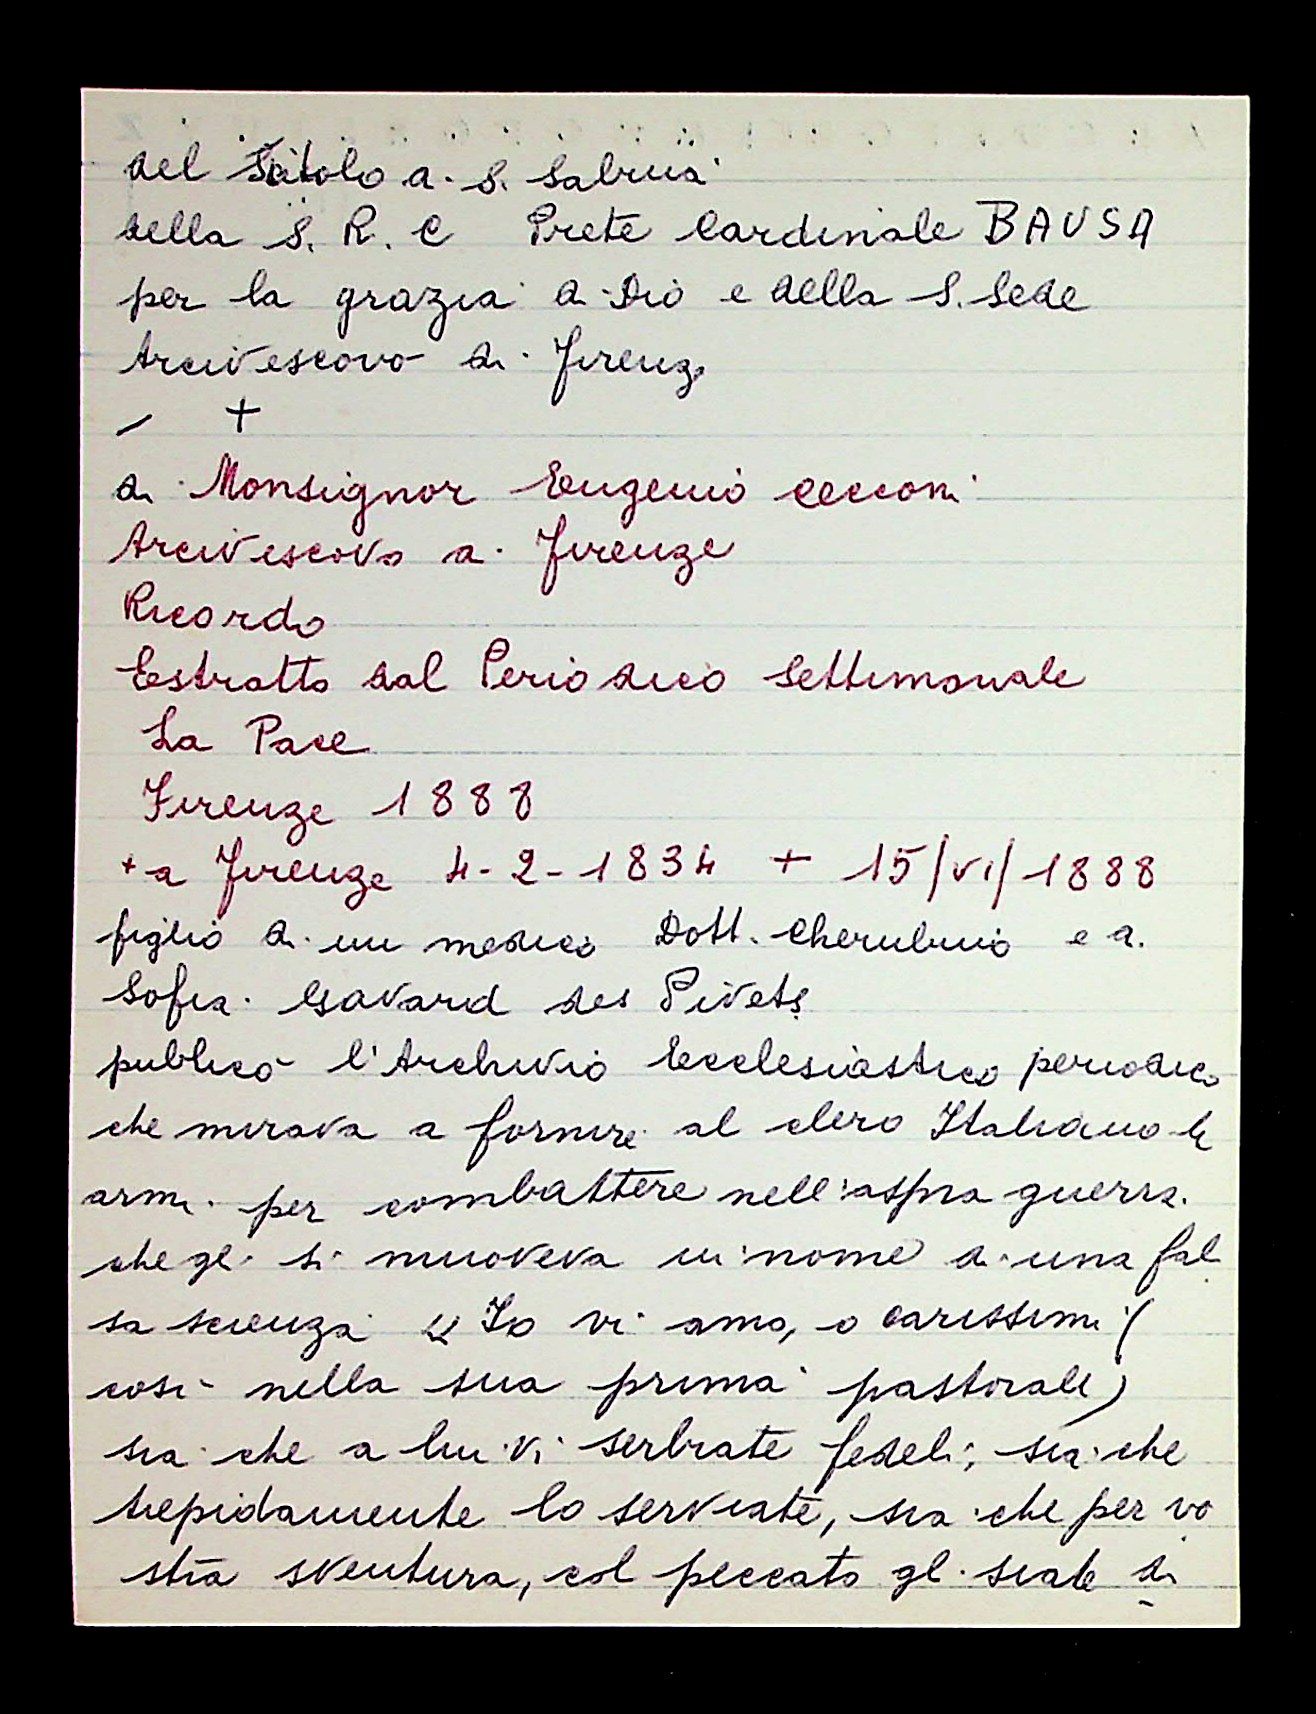 del Titolo di S. Sabina
della S. R. C Prete Cardinale BAUSA
per la grazia di Dio e della S. Sede
Arcivescovo di Firenze
- +
di Monsignor Eugenio Cecconi
Arcivescovo di Firenze
Ricordo
Estratto dal Periodico Settimanale
La Pace
Firenze 1888
+ a Firenze 4-2-1834 + 15/VI/1888
figlio di un medico Dott. Cherubino e di
Sofia Gavard des Pivets
publicò l'Archivio Ecclesiastico periodico
che mirava a fornire al clero Italiano le
armi per combattere nell'aspra guerra
che gli si muoveva in nome di una fal
sa scienza « Io vi amo, o carissimi (
così nella sua prima pastorale)
sia che a lui vi serbiate fedeli; sia che
tiepidamente lo serviate, sia che per vo
stra sventura, col peccato gli siate di